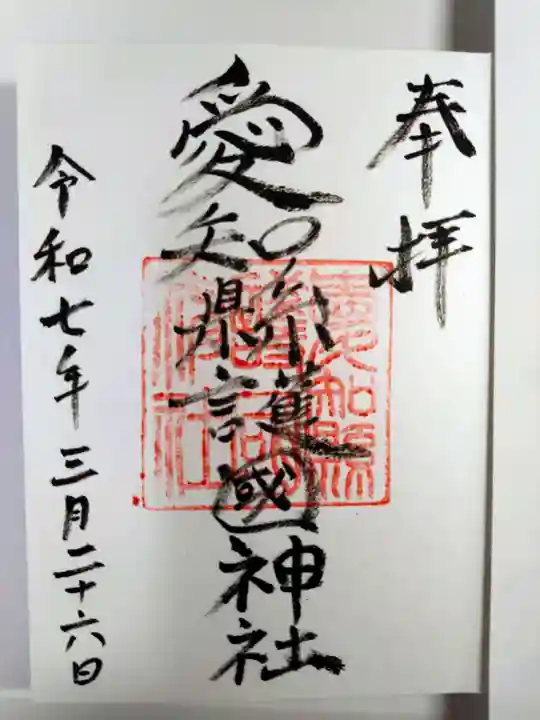 奉拝
愛知縣護國神社
令和七年三月二十六日
愛知縣
護國
神社